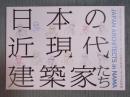 日本の
近現代
建築家たち
JAPAN ARCHITECTS in NAMI